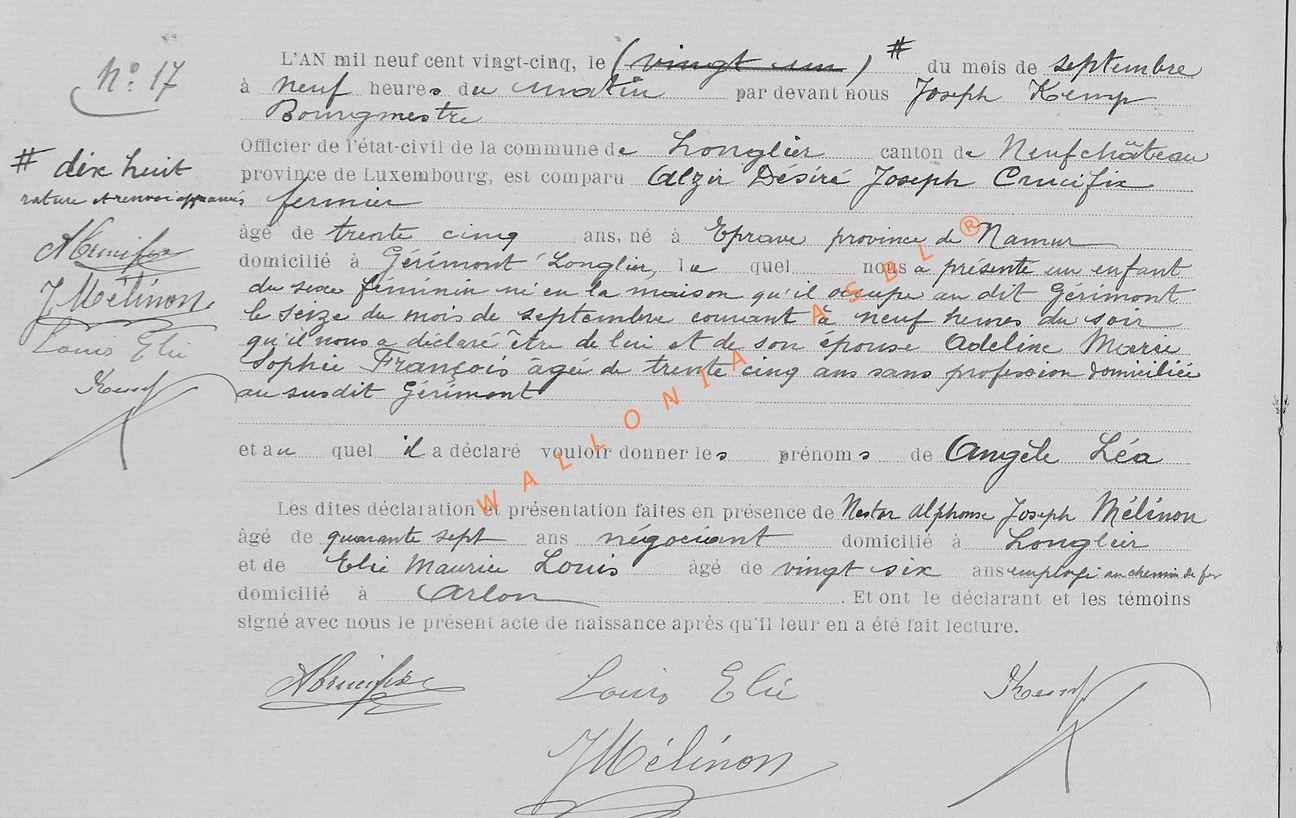 N° 17
L'AN mil neuf cent vingt-cinq, le (vingt un) # du mois de septembre
à neuf heures du matin par devant nous Joseph Kemp
Bourgmestre
Officier de l'état-civil de la commune de Longlier canton de Neufchâteau
province de Luxembourg, est comparu Alzir Désiré Joseph Crucifix
fermier
âgé de trente cinq ans, né à Eprave province de Namur
domicilié à Gérimont Longlier, le quel nous a présenté un enfant
du sexe féminin né en la maison qu'il occupe au dit Gérimont
le seize du mois de septembre courant à neuf heures du soir
qu'il nous a déclaré être de lui et de son épouse Adeline Marie
Sophie François âgée de trente cinq ans sans profession domiciliée
au susdit Gérimont
et au quel il a déclaré vouloir donner les prénoms de Angèle Léa
Les dites déclaration et présentation faites en présence de Nestor Alphonse Joseph Mélinon
âgé de quarante sept ans négociant domicilié à Longlier
et de Elie Maurice Louis âgé de vingt six ans employé au chemin de fer
domicilié à Arlon. Et ont le déclarant et les témoins
signé avec nous le présent acte de naissance après qu'il leur en a été fait lecture.
# dix huit
rature et renvoi approuvés
ACrucifix
JMélinon
Louis Elie
Kemp
ACrucifix Louis Elie Kemp
JMélinon
WALLONIA ASBL ®